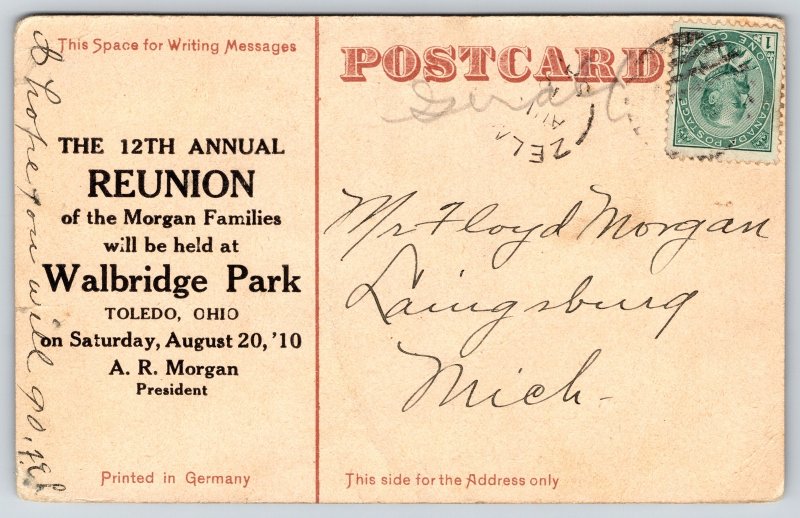 This Space for Writing Messages
POSTCARD
THE 12TH ANNUAL
REUNION
of the Morgan Families
will be held at
Walbridge Park
TOLEDO, OHIO
on Saturday, August 20, '10
A. R. Morgan
President
I hope you will go.
Mr Floyd Morgan
Laingsburg
Mich-
CANADA POSTAGE
ONE CENT
1
Printed in Germany
This side for the Address only